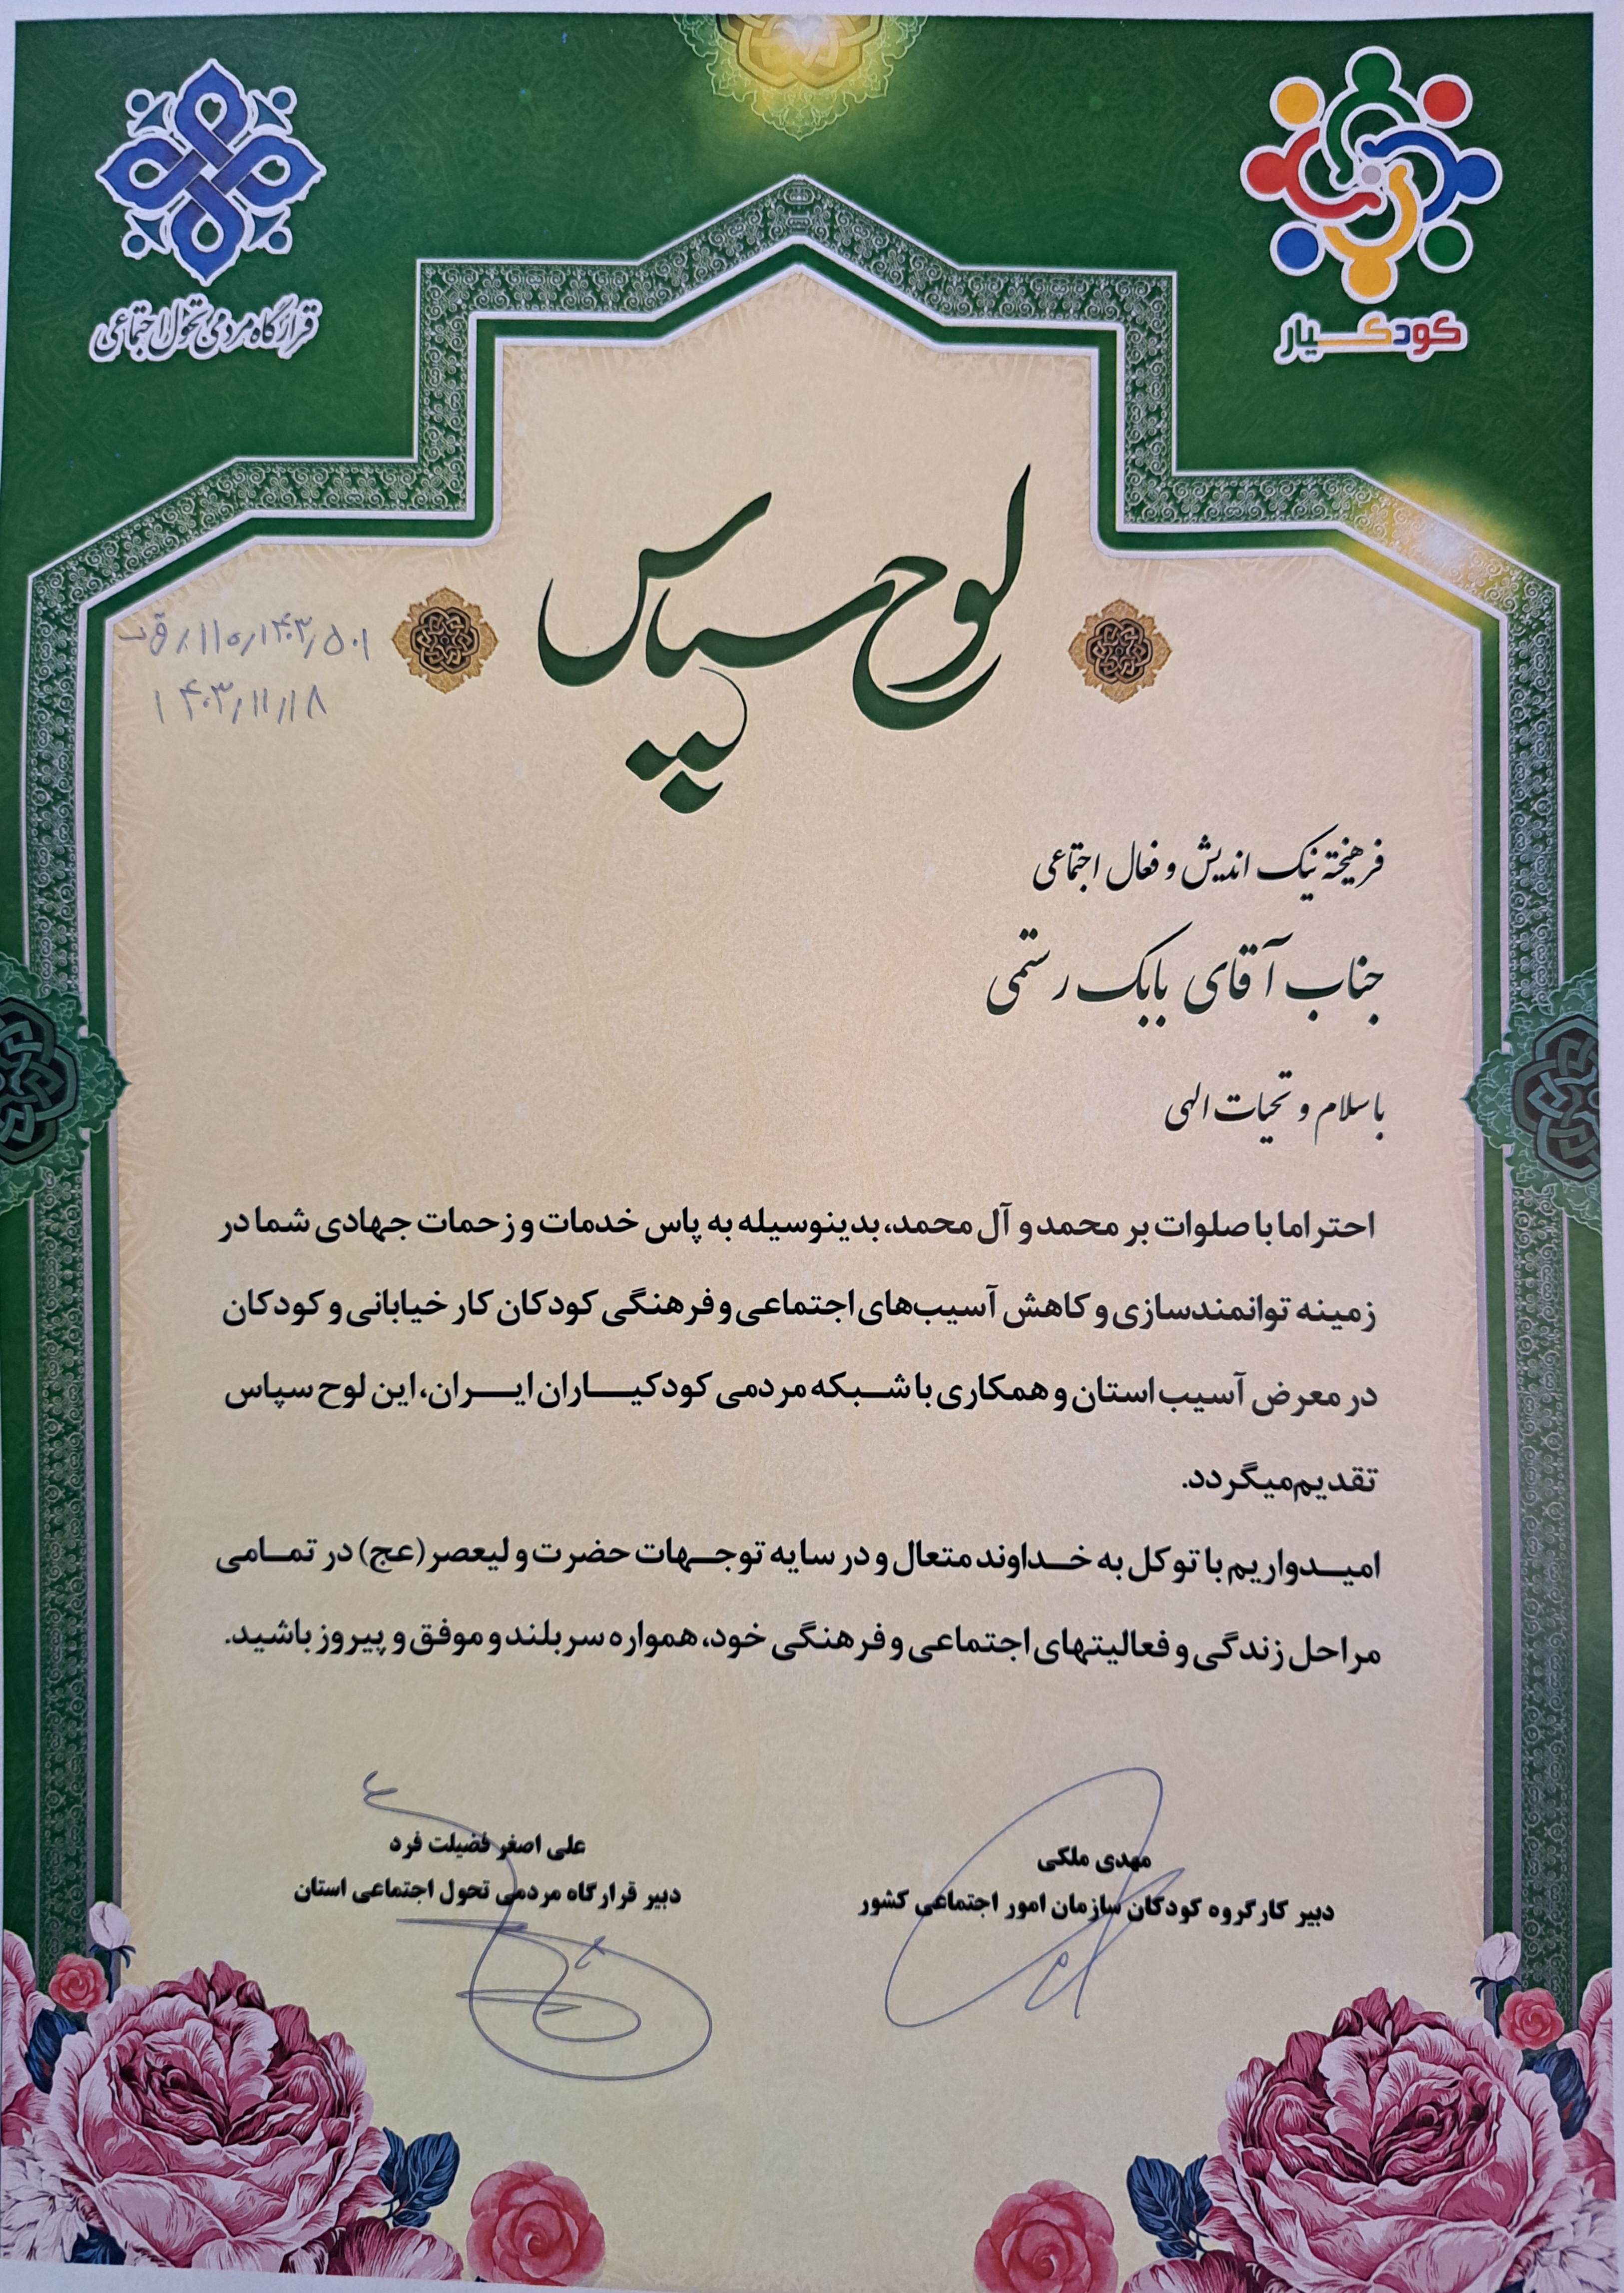 کودکیار
قرارگاه مردمی تحول اجتماعی
لوح سپاس
۱۴۰۳/۱۱/۱۸
فرهیخته نیک اندیش و فعال اجتماعی
جناب آقای بابک رستمی
باسلام و تحیات الهی
احتراما با صلوات بر محمد و آل محمد، بدینوسیله به پاس خدمات و زحمات جهادی شما در
زمینه توانمندسازی و کاهش آسیب‌های اجتماعی و فرهنگی کودکان کار خیابانی و کودکان
در معرض آسیب استان و همکاری با شبکه مردمی کودکیاران ایران، این لوح سپاس
تقدیم میگردد.
امیدواریم با توکل به خداوند متعال و در سایه توجهات حضرت ولیعصر (عج) در تمامی
مراحل زندگی و فعالیتهای اجتماعی و فرهنگی خود، همواره سربلند و موفق و پیروز باشید.
مهدی ملکی
دبیر کارگروه کودکان سازمان امور اجتماعی کشور
علی اصغر فضیلت فرد
دبیر قرارگاه مردمی تحول اجتماعی استان